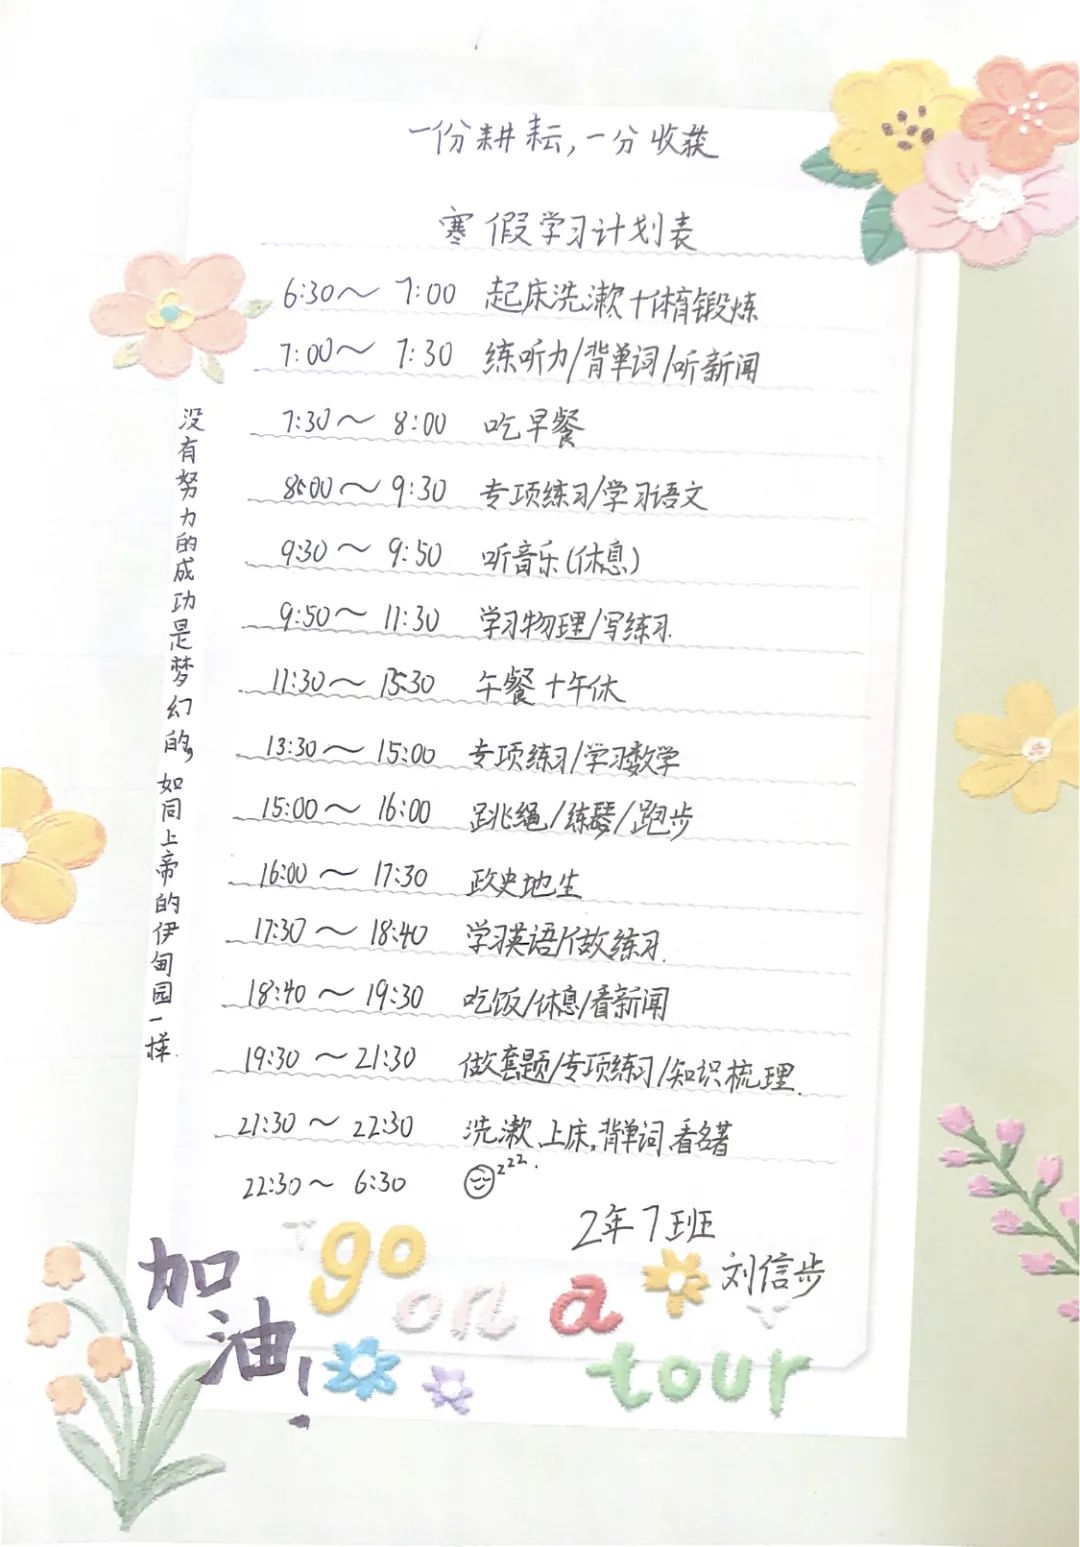 一份耕耘,一分收获
寒假学习计划表
6:30～7:00 起床洗漱+体育锻炼
7:00～7:30 练听力/背单词/听新闻
7:30～8:00 吃早餐
8:00～9:30 专项练习/学习语文
9:30～9:50 听音乐(休息)
9:50～11:30 学习物理/写练习.
11:30～13:30 午餐+午休
13:30～15:00 专项练习/学习数学
15:00～16:00 跳绳/练琴/跑步
16:00～17:30 政史地生
17:30～18:40 学习英语/做练习.
18:40～19:30 吃饭/休息/看新闻
19:30～21:30 做套题/专项练习/知识梳理.
21:30～22:30 洗漱上床,背单词,看名著
22:30～6:30 zzz.
2年7班
刘信步
没有努力的成功是梦幻的,如同上帝的伊甸园一样.
加油!
go on a tour